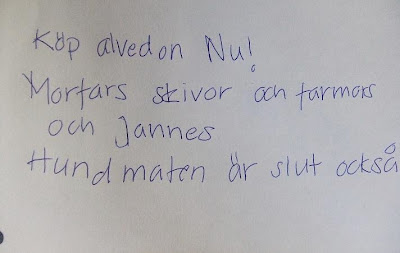 Köp alvedon Nu!
Morfars skivor och farmors
och Jannes
Hundmaten är slut också